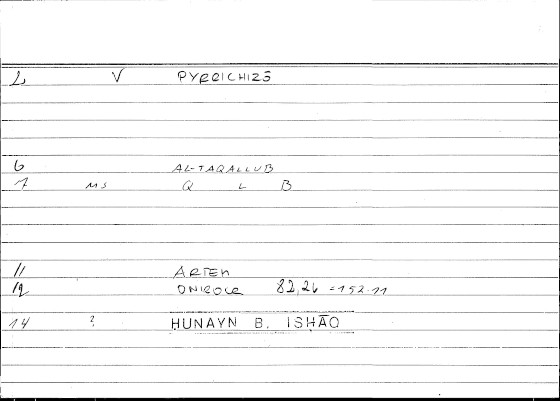 2 V PYRRICHIZŌ
6 AL-TAQALLUB
7 MS Q L B
11 ARTEM
12 ONIROCR 82,26 = 152.11
14 ? HUNAYN B. ISḤĀQ